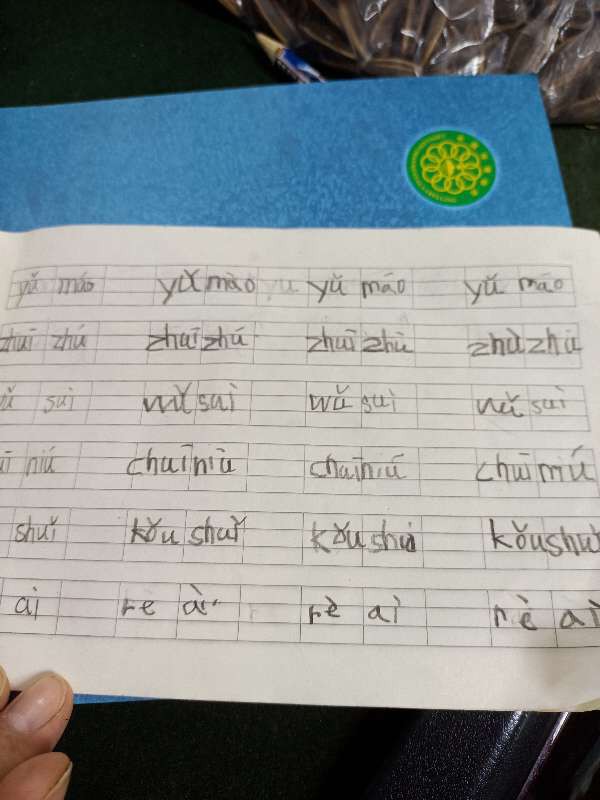 yǔ máo yǔ mào yu yǔ máo yǔ máo
zhuī zhú zhuī zhú zhuī zhù zhù zhú
suì wǔ suì wǔ suì wǔ suì
niú chuī niū chuī niú chuī niú
shuǐ kǒu shuǐ kǒu shuǐ kǒu shuǐ
ài re ài rè aì rè ài